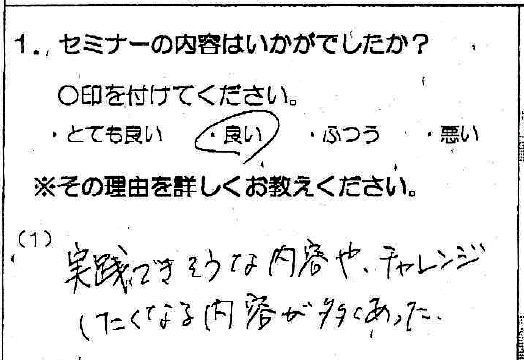 1. セミナーの内容はいかがでしたか?
○印を付けてください。
・とても良い ・良い ・ふつう ・悪い
※その理由を詳しくお教えください。
(1)
実践できそうな内容や、チャレンジ
したくなる内容が多くあった。